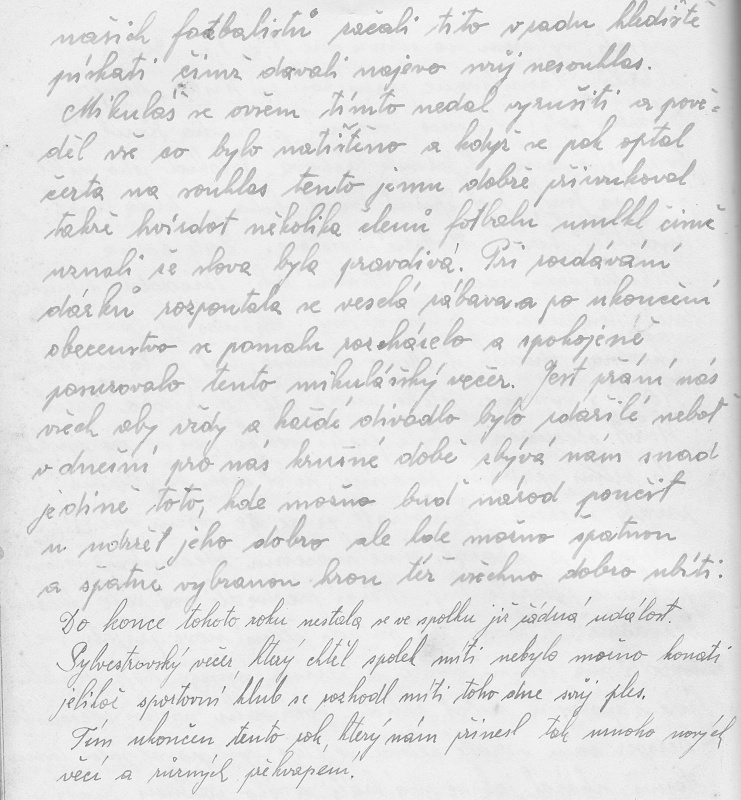 našich fotbalistů začali tito vzadu hlediště
pískati čímž davali najevo svůj nesouhlas.
Mikuláš se ovšem tímto nedal vyrušiti a pově-
děl vše co bylo natištěno a když se pak optal
čerta na souhlas tento jemu dobře přizvukoval
takže hvízdot několika členů fotbalu umlkl čímž
uznali že slova byla pravdivá. Při rozdávání
dárků rozpoutala se veselá zábava a po ukončení
obecenstvo se pomalu rozcházelo a spokojeně
posuzovalo tento mikulášský večer. Jest přání nás
všech aby vždy a každé divadlo bylo zdařilé neboť
v dnešní pro nás krušné době zbývá nám snad
jedině toto, kde možno buď národ poučit
u udržet jeho dobro ale lze možno špatnou
a špatně vybranou hrou též všechno dobro ubíti.
Do konce tohoto roku nestala se ve spolku již žádná událost.
Sylvestrovský večer, který chtěl spolek míti nebylo možno konati
jelikož sportovní klub se rozhodl míti toho dne svůj ples.
Tím ukončen tento rok, který nám přinesl tak mnoho nových
věcí a různých překvapení.